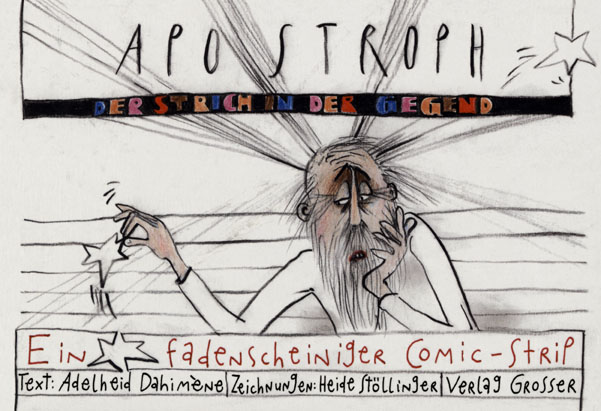 APOSTROPH
DER STRICH IN DER GEGEND
Ein fadenscheiniger Comic-Strip
Text: Adelheid Dahimène Zeichnungen: Heide Stöllinger Verlag Grosser